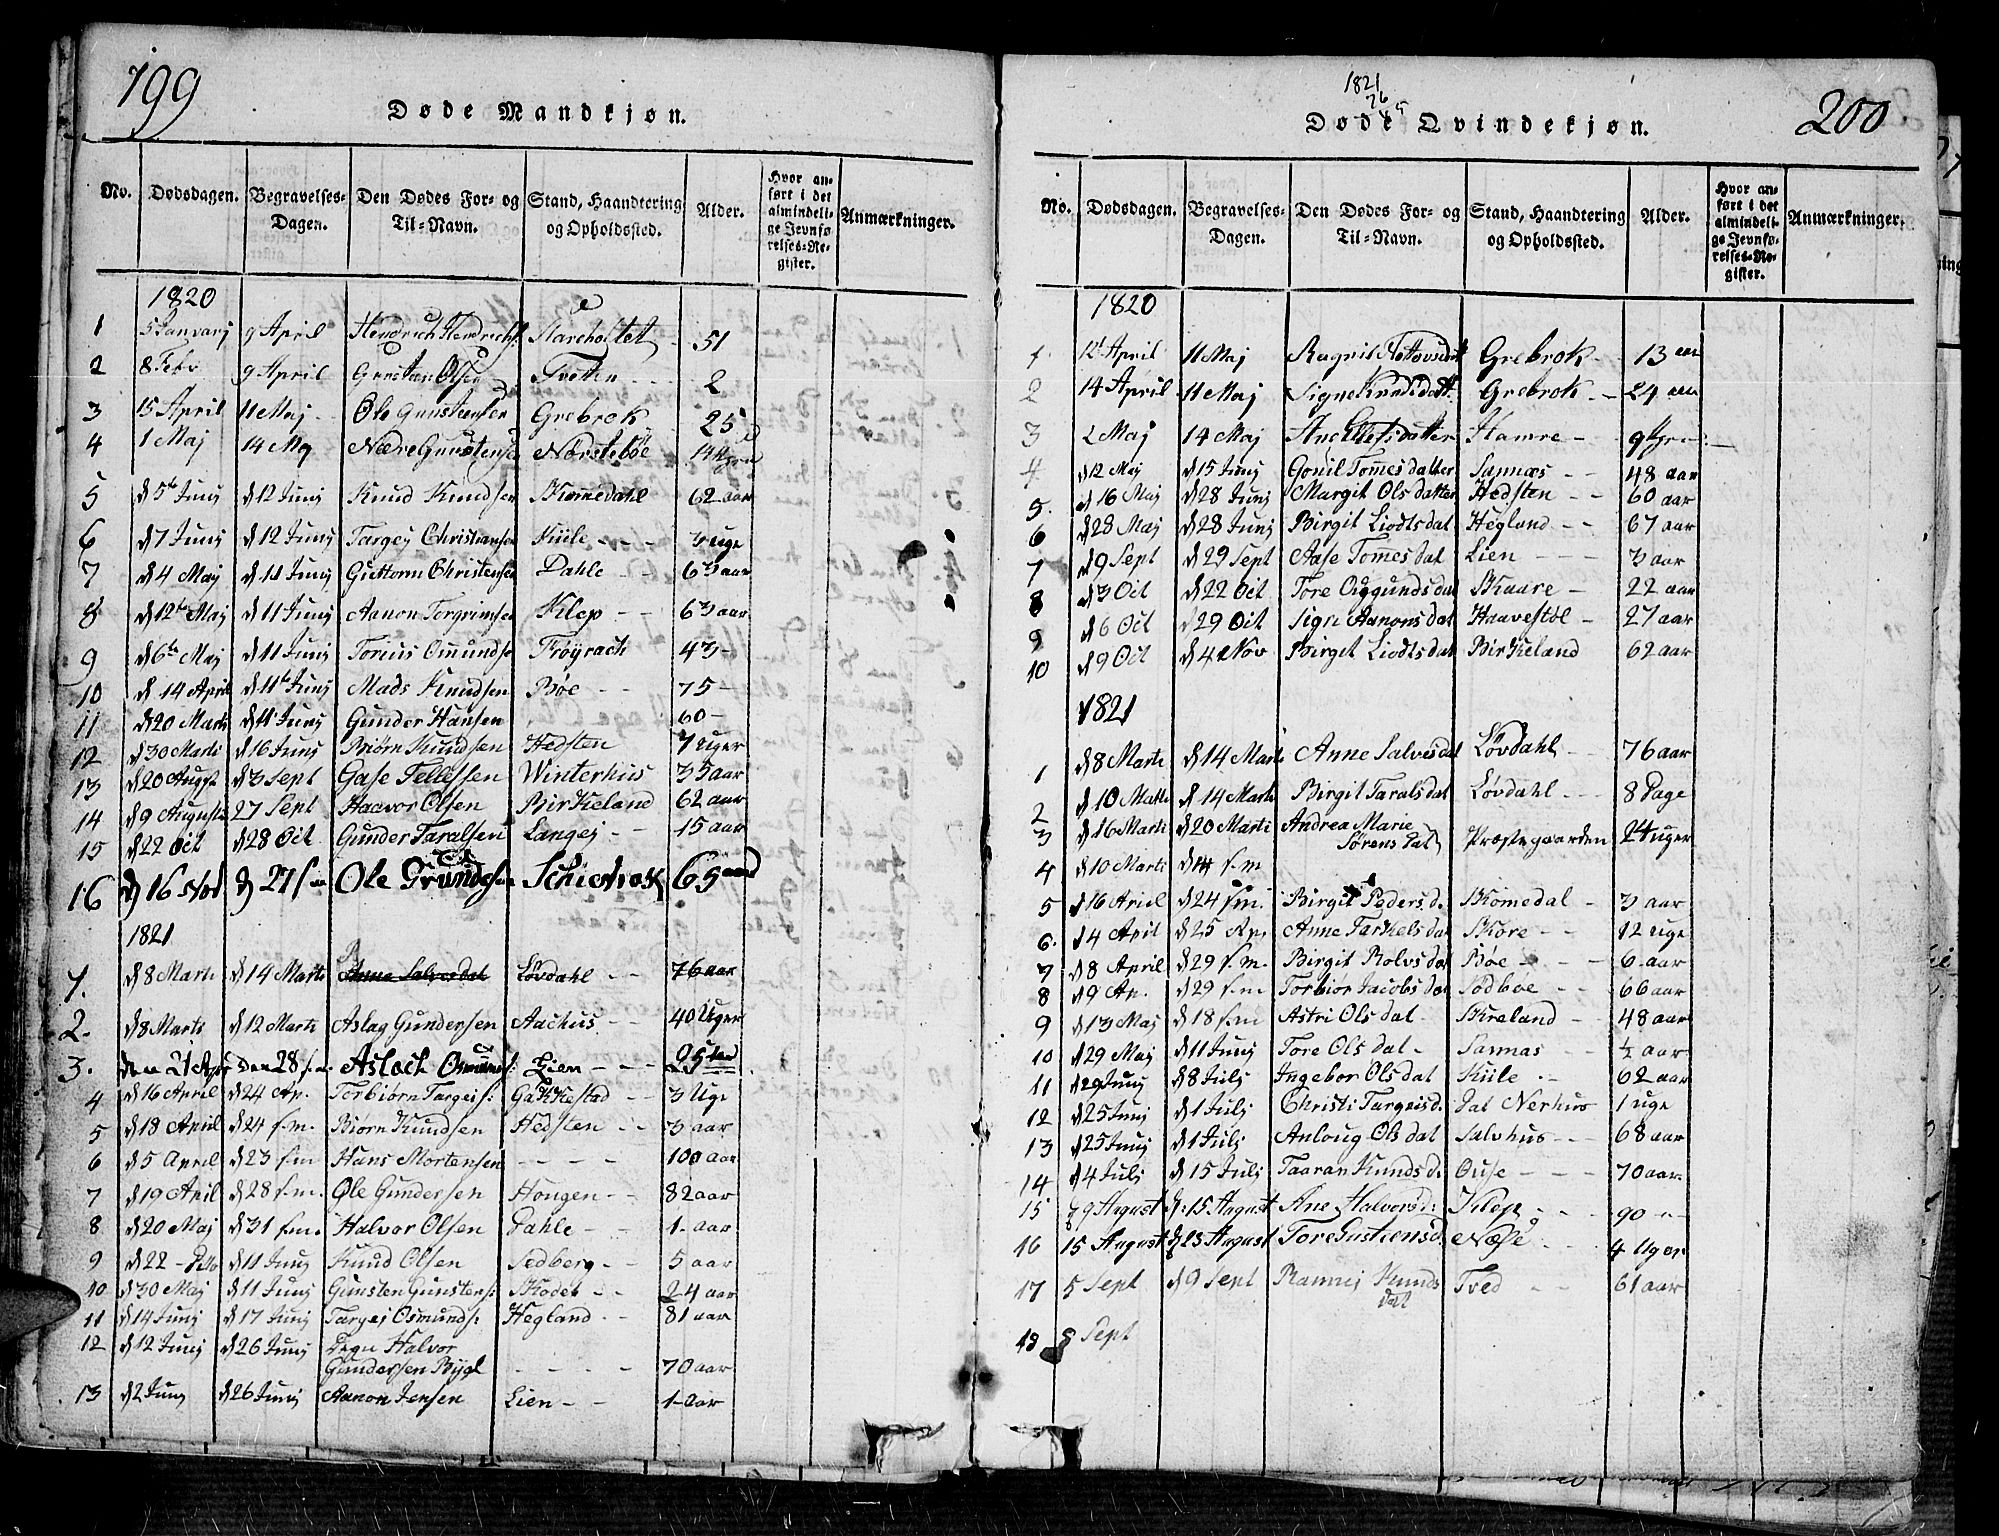 199
Døde Mandkjøn.
No. Dødsdagen. Begravelses-Dagen. Den Dødes For- og Til-Navn. Stand, Haandtering og Opholdssted. Alder. Hvor anført i det almindelige Jevnførelses-Register. Anmærkninger.
1820
1 5 Januarj 9 April Hendrich Hendrichs: Stareholtet 51
2 8 Febr 9 April Gunstan Olsen Tveten - - - 2
3 15 April 11 Maj - Ole Gunstensen Grebrok 25
4 1 Maj 14 Maj Nære Gunstensen Nørstebøe
5 d 5te Junj d 12 Junj Knud Knudsen Skomedahl 62 aar
6 d 7 Junj d 12 Junj Targej Christiansen Kiile - - 3 uge
7 d 4 Maj d 11 Junj Guttorm Christensen Dahle - - 63 aar
8 d 12te Maj d 11 Junj Aanon Torgrimsen Klep - - 63 aar
9 d 6te Maj d 11 Junj Torius Omundse Frøyrach 43 -
10 d 14 April d 11te Junj Mads Knudsen Bøe - - 75 -
11 d 20 Marti d 11 Junj Gunder Hansen 60 -
12 d 30 Marti d 16 Junj Biørn Knudsen Hedsten 7 uger
13 d 20 Augst d 3 Sept Gase Tellefsen Winterhus 35 aar
14 d 9 Augusti 27 Sept Haavor Olsen Birkeland 62 aar
15 d 22 Oct d 28 Oct Gunder Taralsen Langej - - 15 aar
16 d 16 Nov d 21 Ole Grundesen 65 aar
1821
1. d 8 Marti d 14 Marti Anne Salvesdat Løvdahl - - 76 aar
2. d 8 Marti d 12 Marti Aslag Gundersen Aachus - - 40 Uger
3. den 21 Apr den 28 Aslach Osmunds: Lien - - -
4 d 16 April d 24 Ap. Torbiørn Targeis: Gakkestad 3 Uge
5 d 18 April d 24 f.m. Biørn Knudsen Hedsten - - 3 aar
6 d 5 April d 23 f.m Hans Mortensen - - - - 100 aar
7 d 19 April d 28 f.m. Ole Gundersen Hougen - - 82 aar
8 d 20 Maj d 31 f.m. Halvor Olsen Dahle - - 1 - aar
9 d 22 - d 11 Junj Knud Olsen Sedberg - - 5 aar
10 d 30 Maj d 11 Junj Gunsten Gunstens: Skodet - - 24 aar
11 d 14 Junj d 17 Junj Targej Osmunds: Hegland - - 81 aar
12 d 12 Junj d 26 Junj Halvor
Gundersen Bygl - - - - 70 aar
13 d 2 Junj d 26 Junj Aanon Jensen Lien - - 1 - aar
1821
26
5
Døde Qvindekjøn.
200
No. Dødsdagen. Begravelses-Dagen. Den Dødes For- og Til-Navn. Stand, Haandtering og Opholdssted. Alder. Hvor anført i det almindelige Jevnførelses-Register. Anmærkninger.
1820
1. 12 April 11 Maj Grebrok - - 13 aar
2 14 April 11 Maj Signe Knudsdatt. Grebrok - 24 aar
3 2 Maj 14 Maj Ane Ellefsdatter Hamre - 9
4 d 12 Maj d 15 Junj Gonil Tomesdatter Sannæs - - 48 aar
5. d 16 Maj d 28 Junj Margit Olsdatter Hedsten - - 60 aar
6 d 28 Maj d 28 Junj Birgit Liodtsdat Hegland - - 67 aar
7 d 9 Sept d 29 Sept Aase Tomesdat Lien - - - 3 aar
8 d 3 Oct d 22 Oct Tore Oggundsdat Skaare - 22 aar
9 d 6 Oct d 29 Oct Signe Aanonsdat Haavestøl - 27 aar
10 d 9 Oct d 4 Nov Birget Liodtsdat Birkeland 62 aar
1821
1 d 8 Marti d 14 Marti Anne Salvesdat Løvdahl - - 76 aar
2 d 10 Marti d 14 Marti Birgit Taralsdat Løvdahl - - 8 Dage
3 d 16 Marti d 20 Marti Andrea Marie
Sørens Dat Præstegaarden 24 uger
4 d 10 Marti d 14 f.m
5 d 16 Ariel d 24 f.m. Birgit Peders d. Skomedal - 3 aar
6. 14 April d 25 Ap. Anne Tarkelsdat Skore - - 12 uge
7 d 8 April d 29 f.m. Birgit Rolvsdat Bøe - - 6 - aar
8 d 9 Ap. d 29 f.m Torbiør Jacobsdat Sodbøe - - 66 aar
9 d 13 Maj d 18 f.m Astri Olsdat - Skreland - 48 aar
10 d 29 Maj d 11 Junj Tore Olsdat - Sannas - - ½ aar
11 d 29 Junj d 8 Julj Ingebor Olsdat Kiile - - 62 aar
12 d 25 Junj d 1 Julj Christi Targeisd. Dat Nerhus 1 uge
13 d 25 Junj d 1 Julj Anloug Olsdat Salvhus - - 68 aar
14 d 4 Julj d 15 Julj Taaran Knuds d. Ouse - - - 70 aar
15 d 9 August d: 15 August Ane Halvorsd: Klep - - - 90 - -
16 15 August d 23 August Tore Gustensd. Næse - - 4 Uger
17 5 Sept d 9 Sept Rannej Knuds
dat Tved - - 61 aar
18 8 Sept